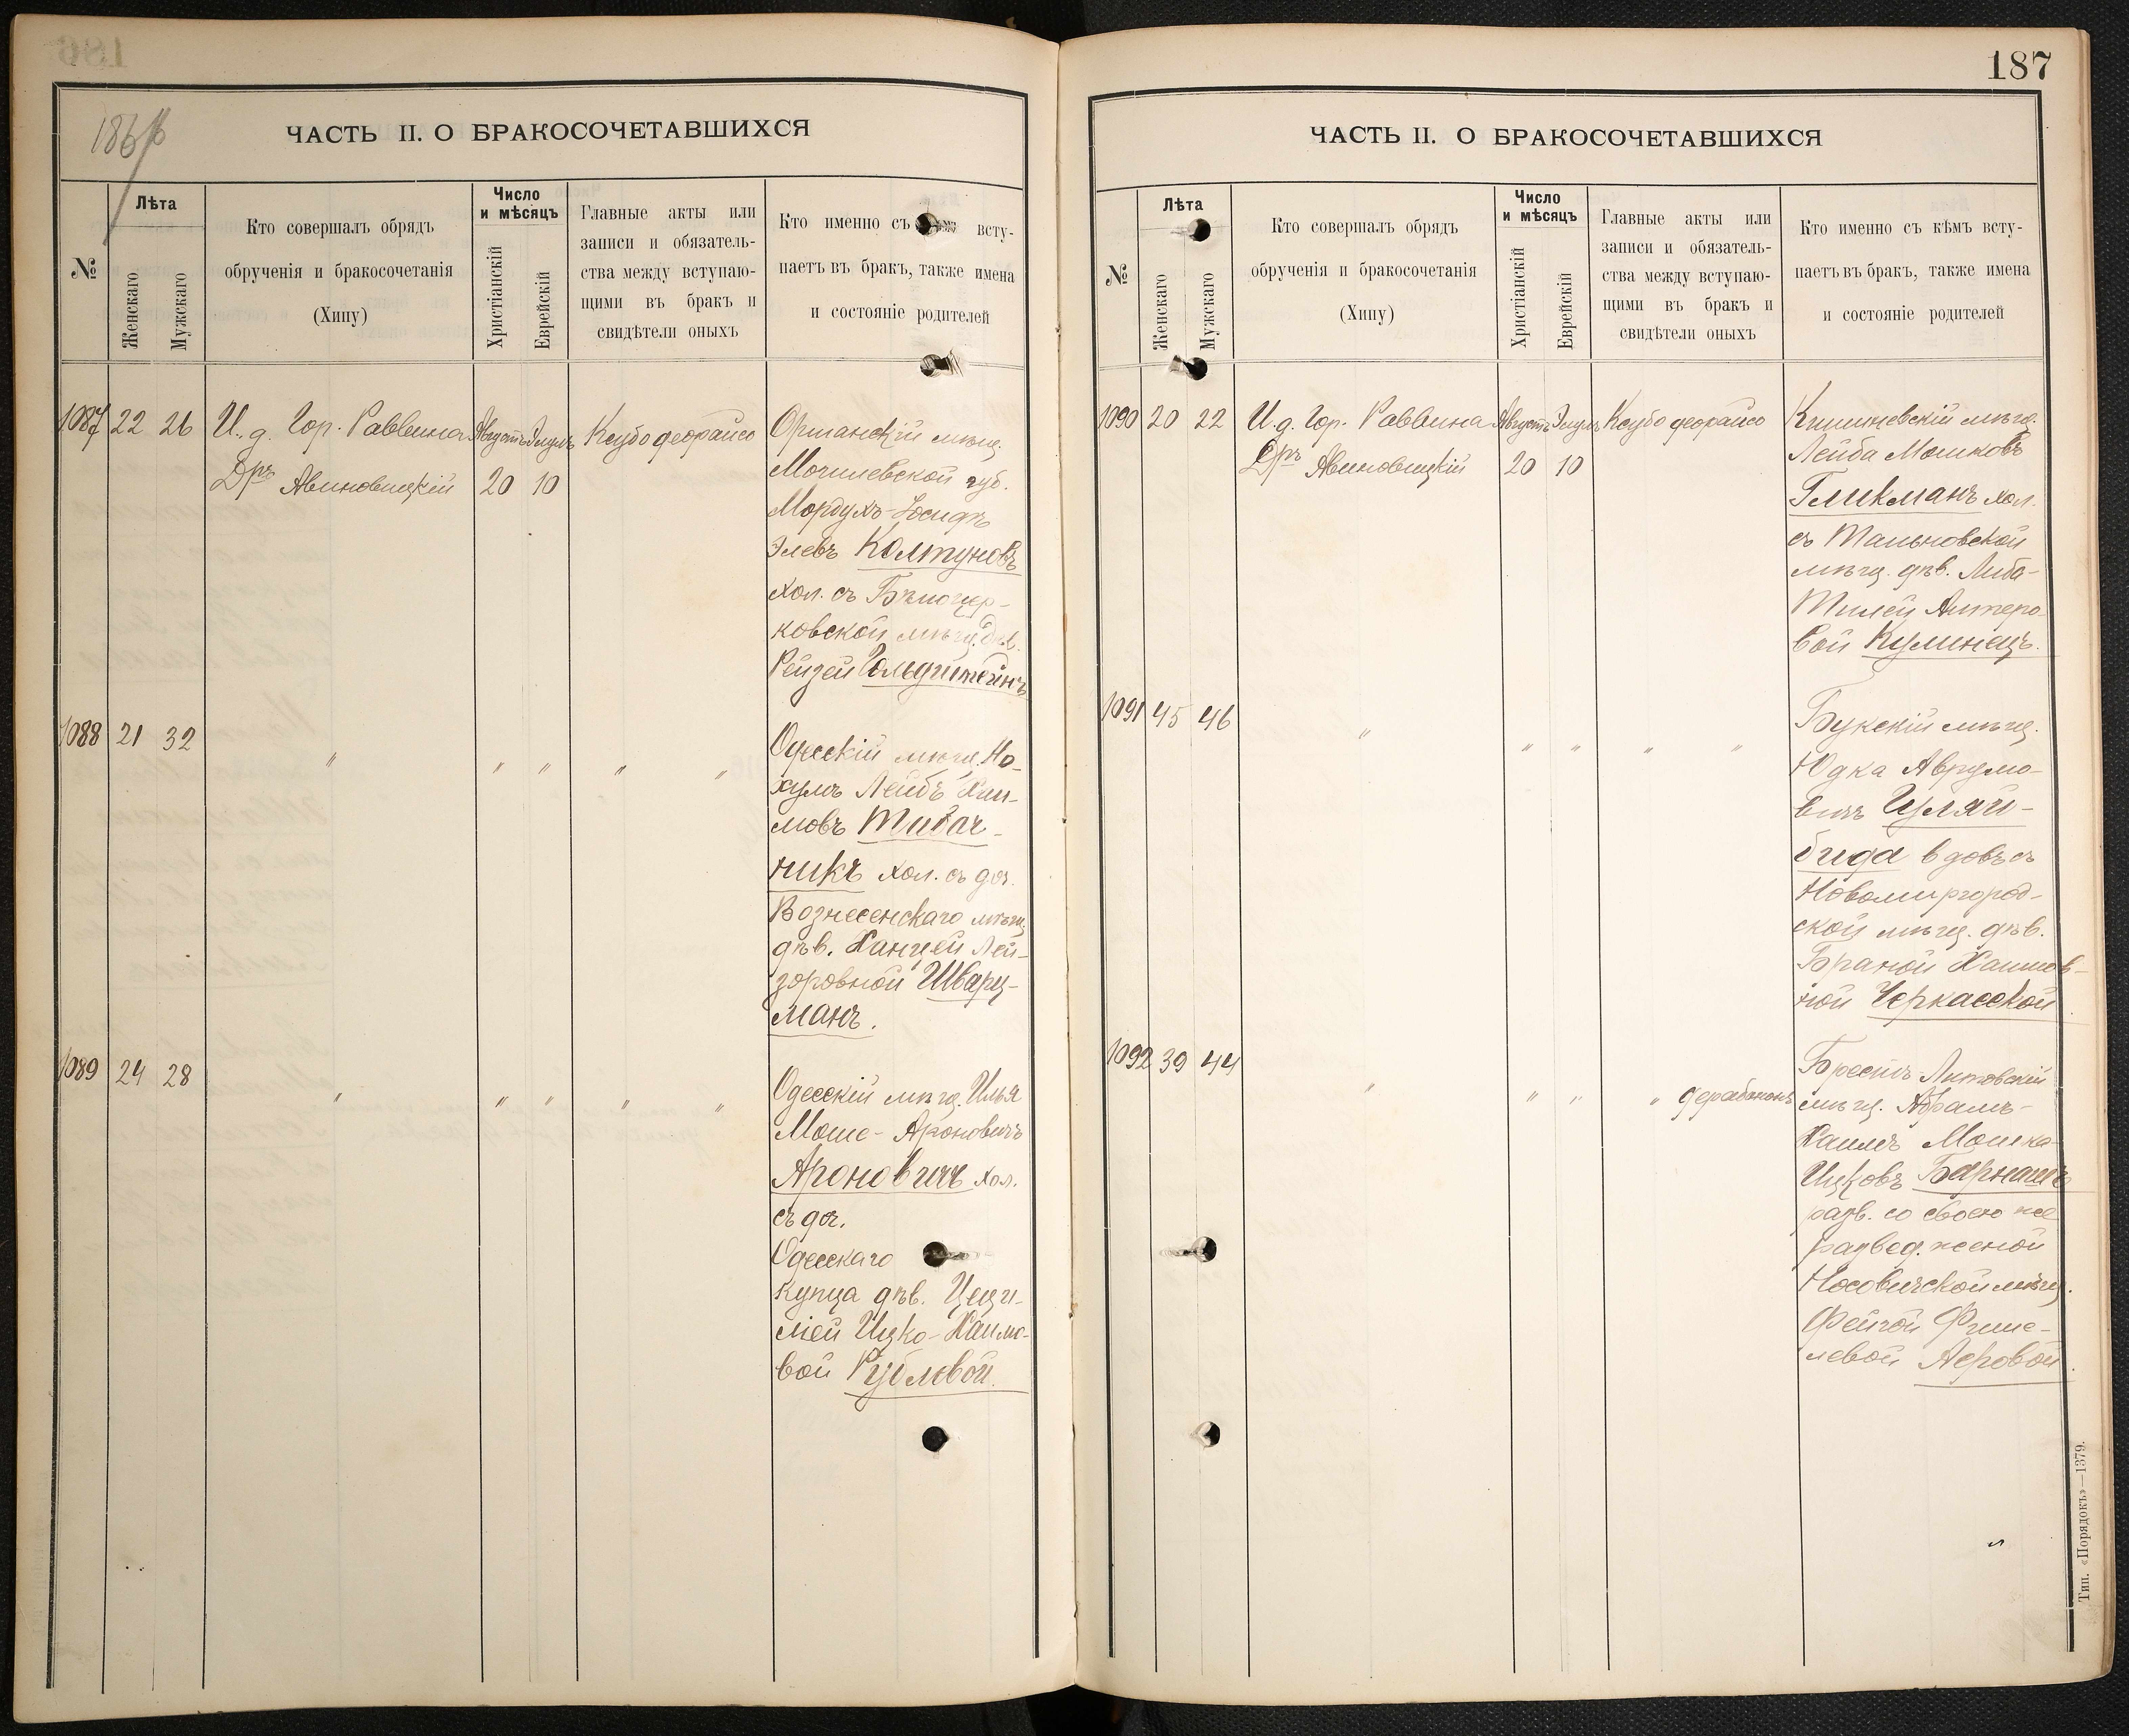 186
ЧАСТЬ II. О БРАКОСОЧЕТАВШИХСЯ
№
Лѣта
Женскаго
Мужскаго
Кто совершалъ обрядъ
обрученія и бракосочетанія
(Хипу)
Число
и мѣсяцъ
Христіанскій
Еврейскій
Главные акты или
записи и обязатель-
ства между вступаю-
щими въ бракъ и
свидѣтели оныхъ
Кто именно съ всту-
паетъ въ бракъ, также имена
и состояніе родителей
1087 22 26 И. д. Гор. Раввина Августъ Элулъ Ксубо деорайсо
Дръ Авиновицкій 20 10
Оршанскій мѣщ.
Могилевской губ.
Мордухъ-Іосифъ
Элевъ Колтуновъ
хол. съ Бѣлоцер-
ковской мѣщ. дѣв.
Рейзей Гольдштейнъ
1088 21 32 " " " " "
Одесскій мѣщ. Но-
хумъ Лейбъ Хаи-
мовъ Табач-
никъ хол. съ доч.
Вознесенскаго мѣщ.
дѣв. Ханцей Лей-
зоровной Шварц-
манъ.
1089 24 28 " " " " "
Одесскій мѣщ. Илья
Моше-Ароновичъ
Ароновичъ хол.
съ доч.
Одесскаго
купца дѣв. Цеци-
ліей Ицко-Хаимо-
вой Рублевой.
187
ЧАСТЬ II. О БРАКОСОЧЕТАВШИХСЯ
№
Лѣта
Женскаго
Мужскаго
Кто совершалъ обрядъ
обрученія и бракосочетанія
(Хипу)
Число
и мѣсяцъ
Христіанскій
Еврейскій
Главные акты или
записи и обязатель-
ства между вступаю-
щими въ бракъ и
свидѣтели оныхъ
Кто именно съ кѣмъ всту-
паетъ въ бракъ, также имена
и состояніе родителей
1090 20 22 И. д. Гор. Раввина Августъ Элулъ Ксубо деорайсо
Дръ Авиновицкій 20 10
Кишиневскій мѣщ.
Лейба Мошковъ
Гликманъ хол.
съ Тальновской
мѣщ. дѣв. Либа-
Тилей Алтеро-
вой Кулинецъ.
1091 45 46 " " " " "
Букскій мѣщ.
Юдка Аврумо-
вичъ
вдовъ съ
Новомиргород-
ской мѣщ. дѣв.
Браной Хаимов-
ной Черкасской.
1092 39 44 " " " " дерабононъ
Брестъ-Литовскій
мѣщ. Абрамъ-
Хаимъ Мошка-
Ицковъ Барнашъ
разв. со своею же
развед. женой
Носовичской мѣщ.
Фейгой Фише-
левой Аеровой.
Тип. «Порядокъ»—1379.